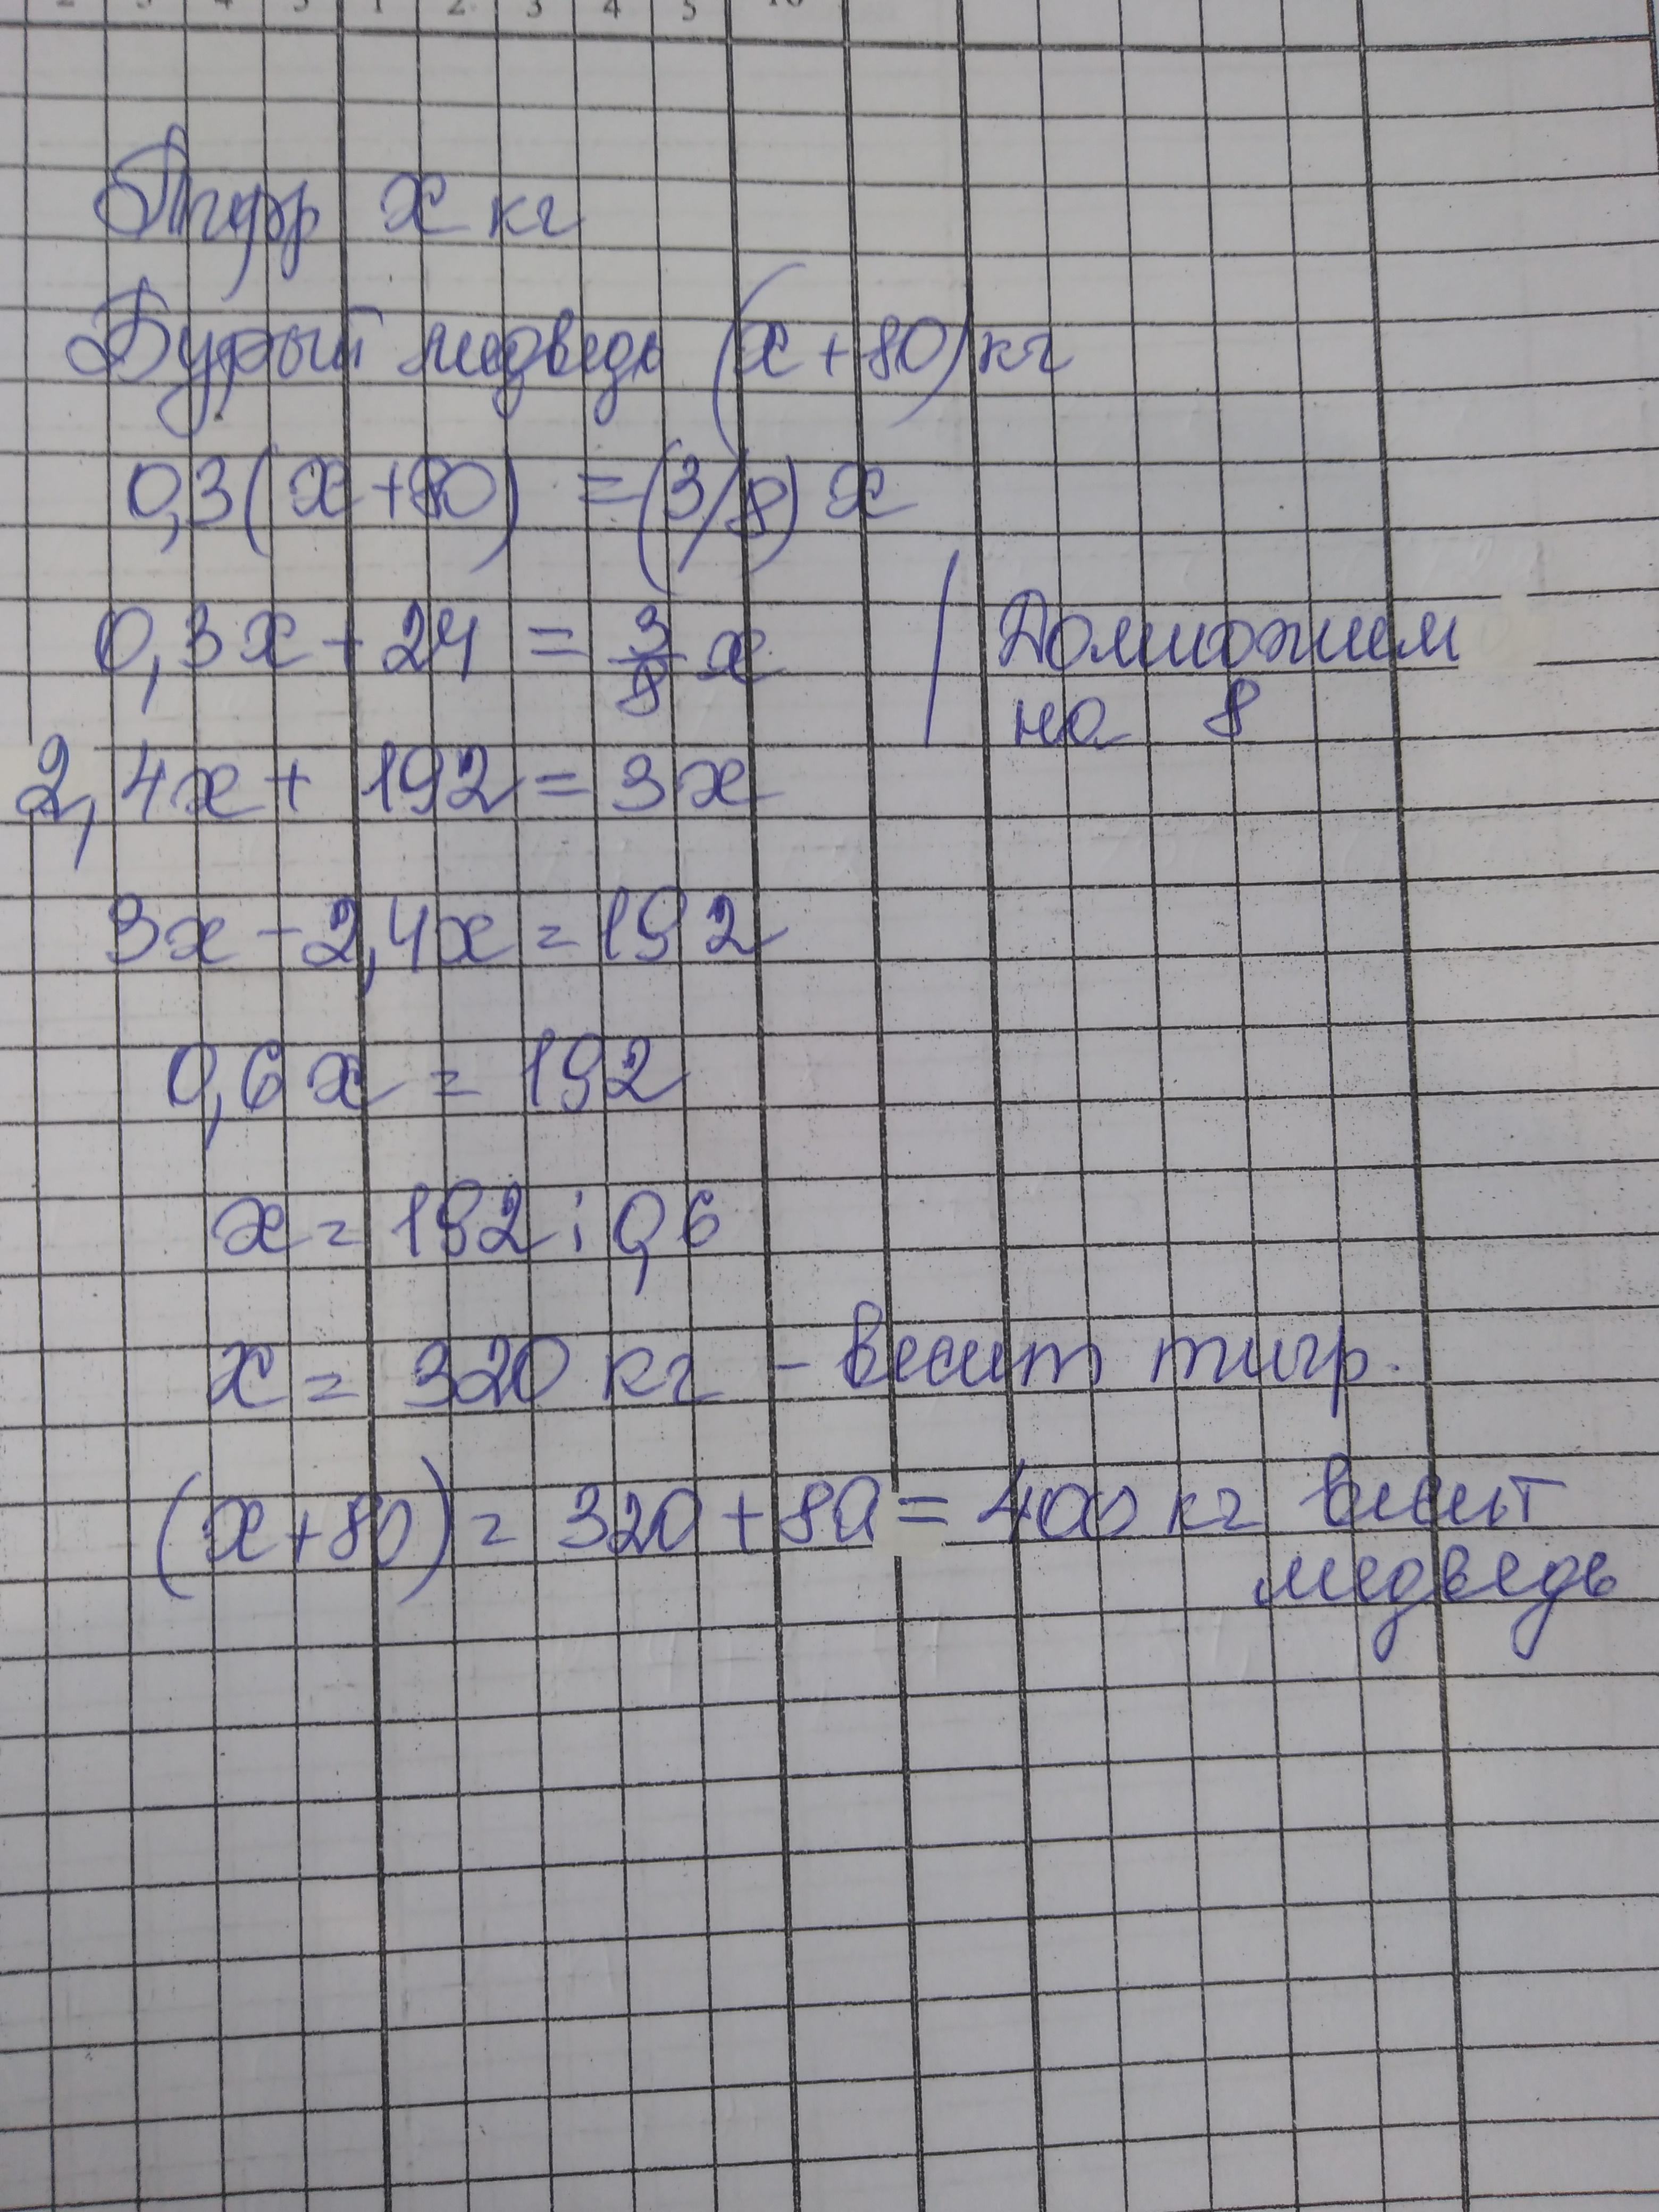 2 3 4 5 1 2 3 4 5 10
Тигр x кг
Бурый медведь (x + 80) кг
0,3(x+80) = (3/8) x
0,3x + 24 = 3/8 x / Домножием
на 8
2,4x + 192 = 3x
3x - 2,4x = 192
0,6x = 192
x = 192 : 0,6
x = 320 кг - весит тигр.
(x+80) = 320 + 80 = 400 кг весит
медведь